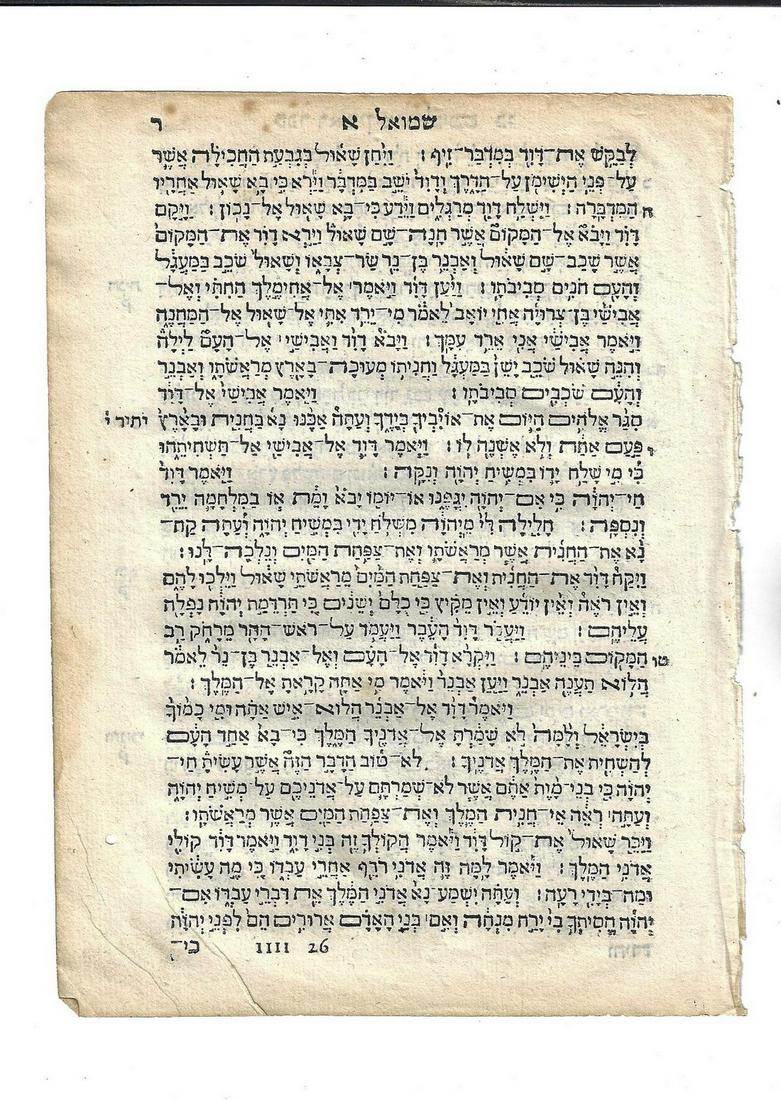 שמואל א ר
לְבַקֵּשׁ אֶת־דָּוִד בְּמִדְבַּר־זִיף׃ וַיִּחַן שָׁאוּל בְּגִבְעַת הַחֲכִילָה אֲשֶׁר
עַל־פְּנֵי הַיְשִׁימֹן עַל־הַדָּרֶךְ וְדָוִד יֹשֵׁב בַּמִּדְבָּר וַיַּרְא כִּי בָא שָׁאוּל אַחֲרָיו
ה הַמִּדְבָּרָה׃ וַיִּשְׁלַח דָּוִד מְרַגְּלִים וַיֵּדַע כִּי־בָא שָׁאוּל אֶל־נָכוֹן׃ וַיָּקָם
דָּוִד וַיָּבֹא אֶל־הַמָּקוֹם אֲשֶׁר חָנָה־שָׁם שָׁאוּל וַיַּרְא דָוִד אֶת־הַמָּקוֹם
אֲשֶׁר שָׁכַב־שָׁם שָׁאוּל וְאַבְנֵר בֶּן־נֵר שַׂר־צְבָאוֹ וְשָׁאוּל שֹׁכֵב בַּמַּעְגָּל
וְהָעָם חֹנִים סְבִיבֹתָו׃ וַיַּעַן דָּוִד וַיֹּאמֶר אֶל־אֲחִימֶלֶךְ הַחִתִּי וְאֶל־
אֲבִישַׁי בֶּן־צְרוּיָה אֲחִי יוֹאָב לֵאמֹר מִי־יֵרֵד אִתִּי אֶל־שָׁאוּל אֶל־הַמַּחֲנֶה
וַיֹּאמֶר אֲבִישַׁי אֲנִי אֵרֵד עִמָּךְ׃ וַיָּבֹא דָוִד וַאֲבִישַׁי אֶל־הָעָם לַיְלָה
וְהִנֵּה שָׁאוּל שֹׁכֵב יָשֵׁן בַּמַּעְגָּל וַחֲנִיתוֹ מְעוּכָה־בָאָרֶץ מְרַאֲשֹׁתָו וְאַבְנֵר
וְהָעָם שֹׁכְבִים סְבִיבֹתָו׃ וַיֹּאמֶר אֲבִישַׁי אֶל־דָּוִד
סִגַּר אֱלֹהִים הַיּוֹם אֶת־אוֹיִבְיךָ בְּיָדֶךָ וְעַתָּה אַכֶּנּוּ נָא בַּחֲנִית וּבָאָרֶץ יתיר י
י פַּעַם אַחַת וְלֹא אֶשְׁנֶה לוֹ׃ וַיֹּאמֶר דָּוִד אֶל־אֲבִישַׁי אַל־תַּשְׁחִיתֵהוּ
כִּי מִי שָׁלַח יָדוֹ בִּמְשִׁיחַ יְהוָה וְנִקָּה׃ וַיֹּאמֶר דָּוִד
חַי־יְהוָה כִּי אִם־יְהוָה יִגָּפֶנּוּ אוֹ־יוֹמוֹ יָבֹא וָמֵת אוֹ בַמִּלְחָמָה יֵרֵד
וְנִסְפָּה׃ חָלִילָה לִּי מֵיְהוָה מִשְּׁלֹחַ יָדִי בִּמְשִׁיחַ יְהוָה וְעַתָּה קַח־
נָא אֶת־הַחֲנִית אֲשֶׁר מְרַאֲשֹׁתָו וְאֶת־צַפַּחַת הַמַּיִם וְנֵלְכָה־לָּנוּ׃
וַיִּקַּח דָּוִד אֶת־הַחֲנִית וְאֶת־צַפַּחַת הַמַּיִם מֵרַאֲשֹׁתֵי שָׁאוּל וַיֵּלְכוּ לָהֶם
וְאֵין רֹאֶה וְאֵין יוֹדֵעַ וְאֵין מֵקִיץ כִּי כֻלָּם יְשֵׁנִים כִּי תַּרְדֵּמַת יְהוָה נָפְלָה
עֲלֵיהֶם׃ וַיַּעֲבֹר דָּוִד הָעֵבֶר וַיַּעֲמֹד עַל־רֹאשׁ־הָהָר מֵרָחֹק רַב
טו הַמָּקוֹם בֵּינֵיהֶם׃ וַיִּקְרָא דָוִד אֶל־הָעָם וְאֶל־אַבְנֵר בֶּן־נֵר לֵאמֹר
הֲלוֹא תַעֲנֶה אַבְנֵר וַיַּעַן אַבְנֵר וַיֹּאמֶר מִי אַתָּה קָרָאתָ אֶל־הַמֶּלֶךְ׃
וַיֹּאמֶר דָּוִד אֶל־אַבְנֵר הֲלוֹא־אִישׁ אַתָּה וּמִי כָמוֹךָ
בְּיִשְׂרָאֵל וְלָמָּה לֹא שָׁמַרְתָּ אֶל־אֲדֹנֶיךָ הַמֶּלֶךְ כִּי־בָא אַחַד הָעָם
לְהַשְׁחִית אֶת־הַמֶּלֶךְ אֲדֹנֶיךָ׃ לֹא־טוֹב הַדָּבָר הַזֶּה אֲשֶׁר עָשִׂיתָ חַי־
יְהוָה כִּי בְנֵי־מָוֶת אַתֶּם אֲשֶׁר לֹא־שְׁמַרְתֶּם עַל־אֲדֹנֵיכֶם עַל־מְשִׁיחַ יְהוָה
וְעַתָּה רְאֵה אֵי־חֲנִית הַמֶּלֶךְ וְאֶת־צַפַּחַת הַמַּיִם אֲשֶׁר מְרַאֲשֹׁתָו׃
וַיַּכֵּר שָׁאוּל אֶת־קוֹל דָּוִד וַיֹּאמֶר הֲקוֹלְךָ זֶה בְּנִי דָוִד וַיֹּאמֶר דָּוִד קוֹלִי
אֲדֹנִי הַמֶּלֶךְ׃ וַיֹּאמֶר לָמָּה זֶּה אֲדֹנִי רֹדֵף אַחֲרֵי עַבְדּוֹ כִּי מֶה עָשִׂיתִי
וּמַה־בְּיָדִי רָעָה׃ וְעַתָּה יִשְׁמַע־נָא אֲדֹנִי הַמֶּלֶךְ אֵת דִּבְרֵי עַבְדּוֹ אִם־
יְהוָה הֱסִיתְךָ בִי יָרַח מִנְחָה וְאִם בְּנֵי הָאָדָם אֲרוּרִים הֵם לִפְנֵי יְהוָה
IIII 26 כי־